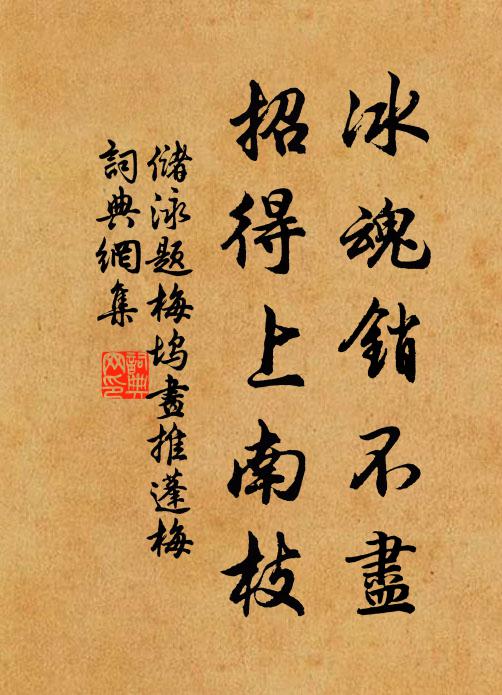 冰魂銷不盡
招得上南枝
儲泳題梅塢畫推蓬梅
詞典網集
詞典網印